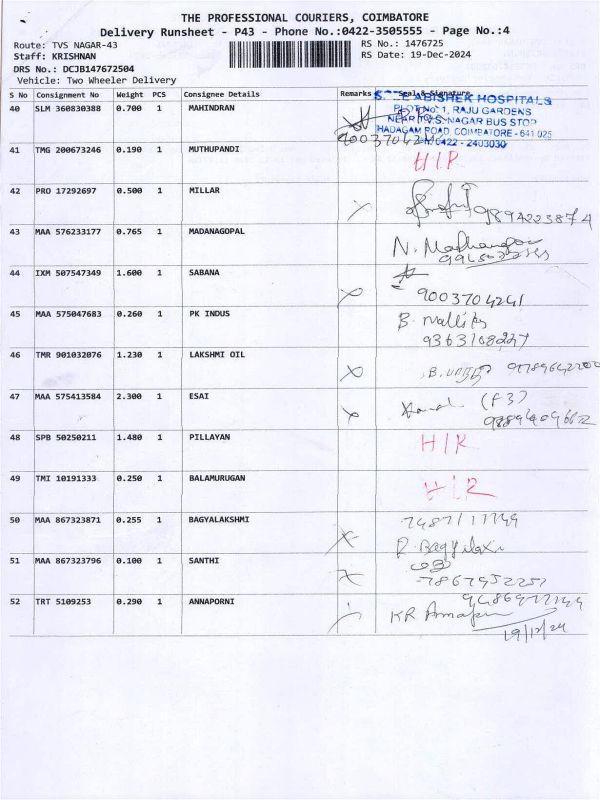 THE PROFESSIONAL COURIERS, COIMBATORE
Delivery Runsheet - P43 - Phone No.:0422-3505555 - Page No.:4
Route: TVS NAGAR-43 RS No.: 1476725
Staff: KRISHNAN RS Date: 19-Dec-2024
DRS No.: DCJB147672504
Vehicle: Two Wheeler Delivery
S No Consignment No Weight PCS Consignee Details Remarks Seal & Signature
40 SLM 360830388 0.700 1 MAHINDRAN
ABISHEK HOSPITALS
PLOT No: 1, RAJU GARDENS
NEAR T.V.S. NAGAR BUS STOP
HADAGAM ROAD, COIMBATORE - 641 025
0422 - 2403030
41 TMG 200673246 0.190 1 MUTHUPANDI
42 PRO 17292697 0.500 1 MILLAR
9894223874
43 MAA 576233177 0.765 1 MADANAGOPAL
N.
44 IXM 507547349 1.600 1 SABANA
9003704241
45 MAA 575047683 0.260 1 PK INDUS
B. Mallika
9363108227
46 TMR 901032076 1.230 1 LAKSHMI OIL
B.
47 MAA 575413584 2.300 1 ESAI
(F3)
48 SPB 50250211 1.480 1 PILLAYAN
49 TMI 10191333 0.250 1 BALAMURUGAN
50 MAA 867323871 0.255 1 BAGYALAKSHMI
R. Bagyalaxi
51 MAA 867323796 0.100 1 SANTHI
52 TRT 5109253 0.290 1 ANNAPORNI
KR
19/12/24